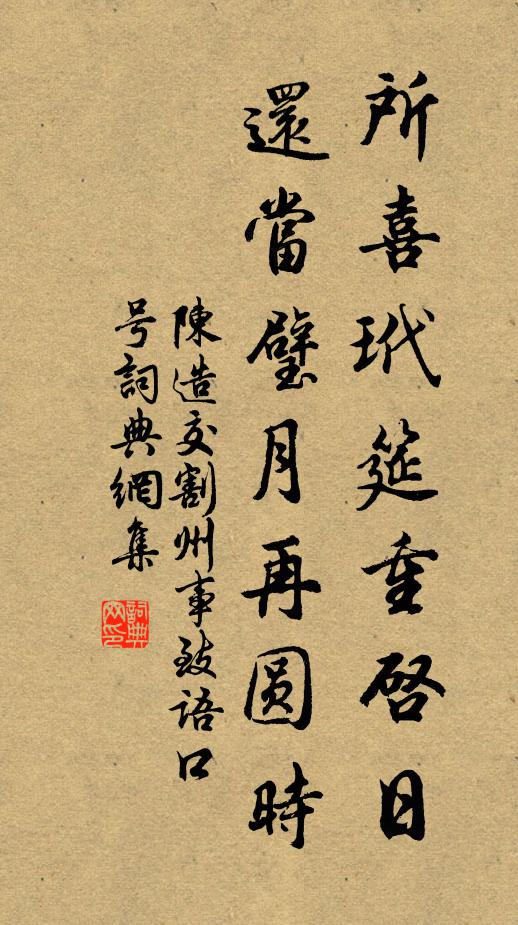 所喜玳筵重启日
還當璧月再圆時
陳造交割州事致語口
号詞典網集
詞典网印